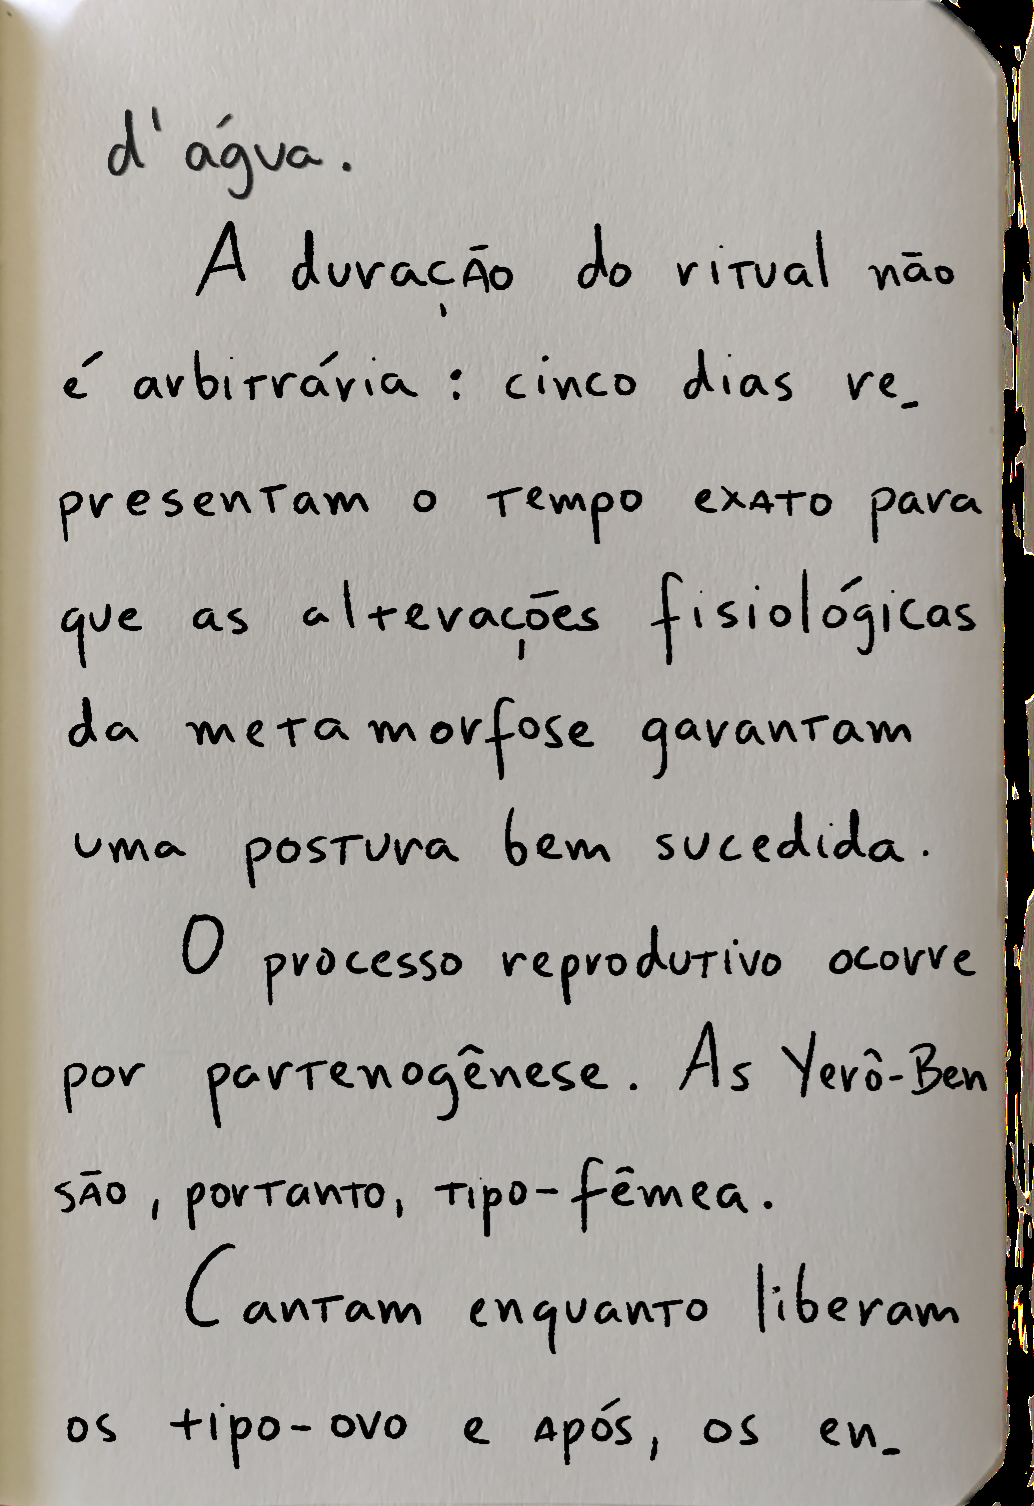 d'água.
A duração do ritual não
é arbitrária: cinco dias re_
presentam o tempo exato para
que as alterações fisiológicas
da metamorfose garantam
uma postura bem sucedida.
O processo reprodutivo ocorre
por partenogênese. As Yerô-Ben
são, portanto, tipo-fêmea.
Cantam enquanto liberam
os tipo-ovo e após, os en_